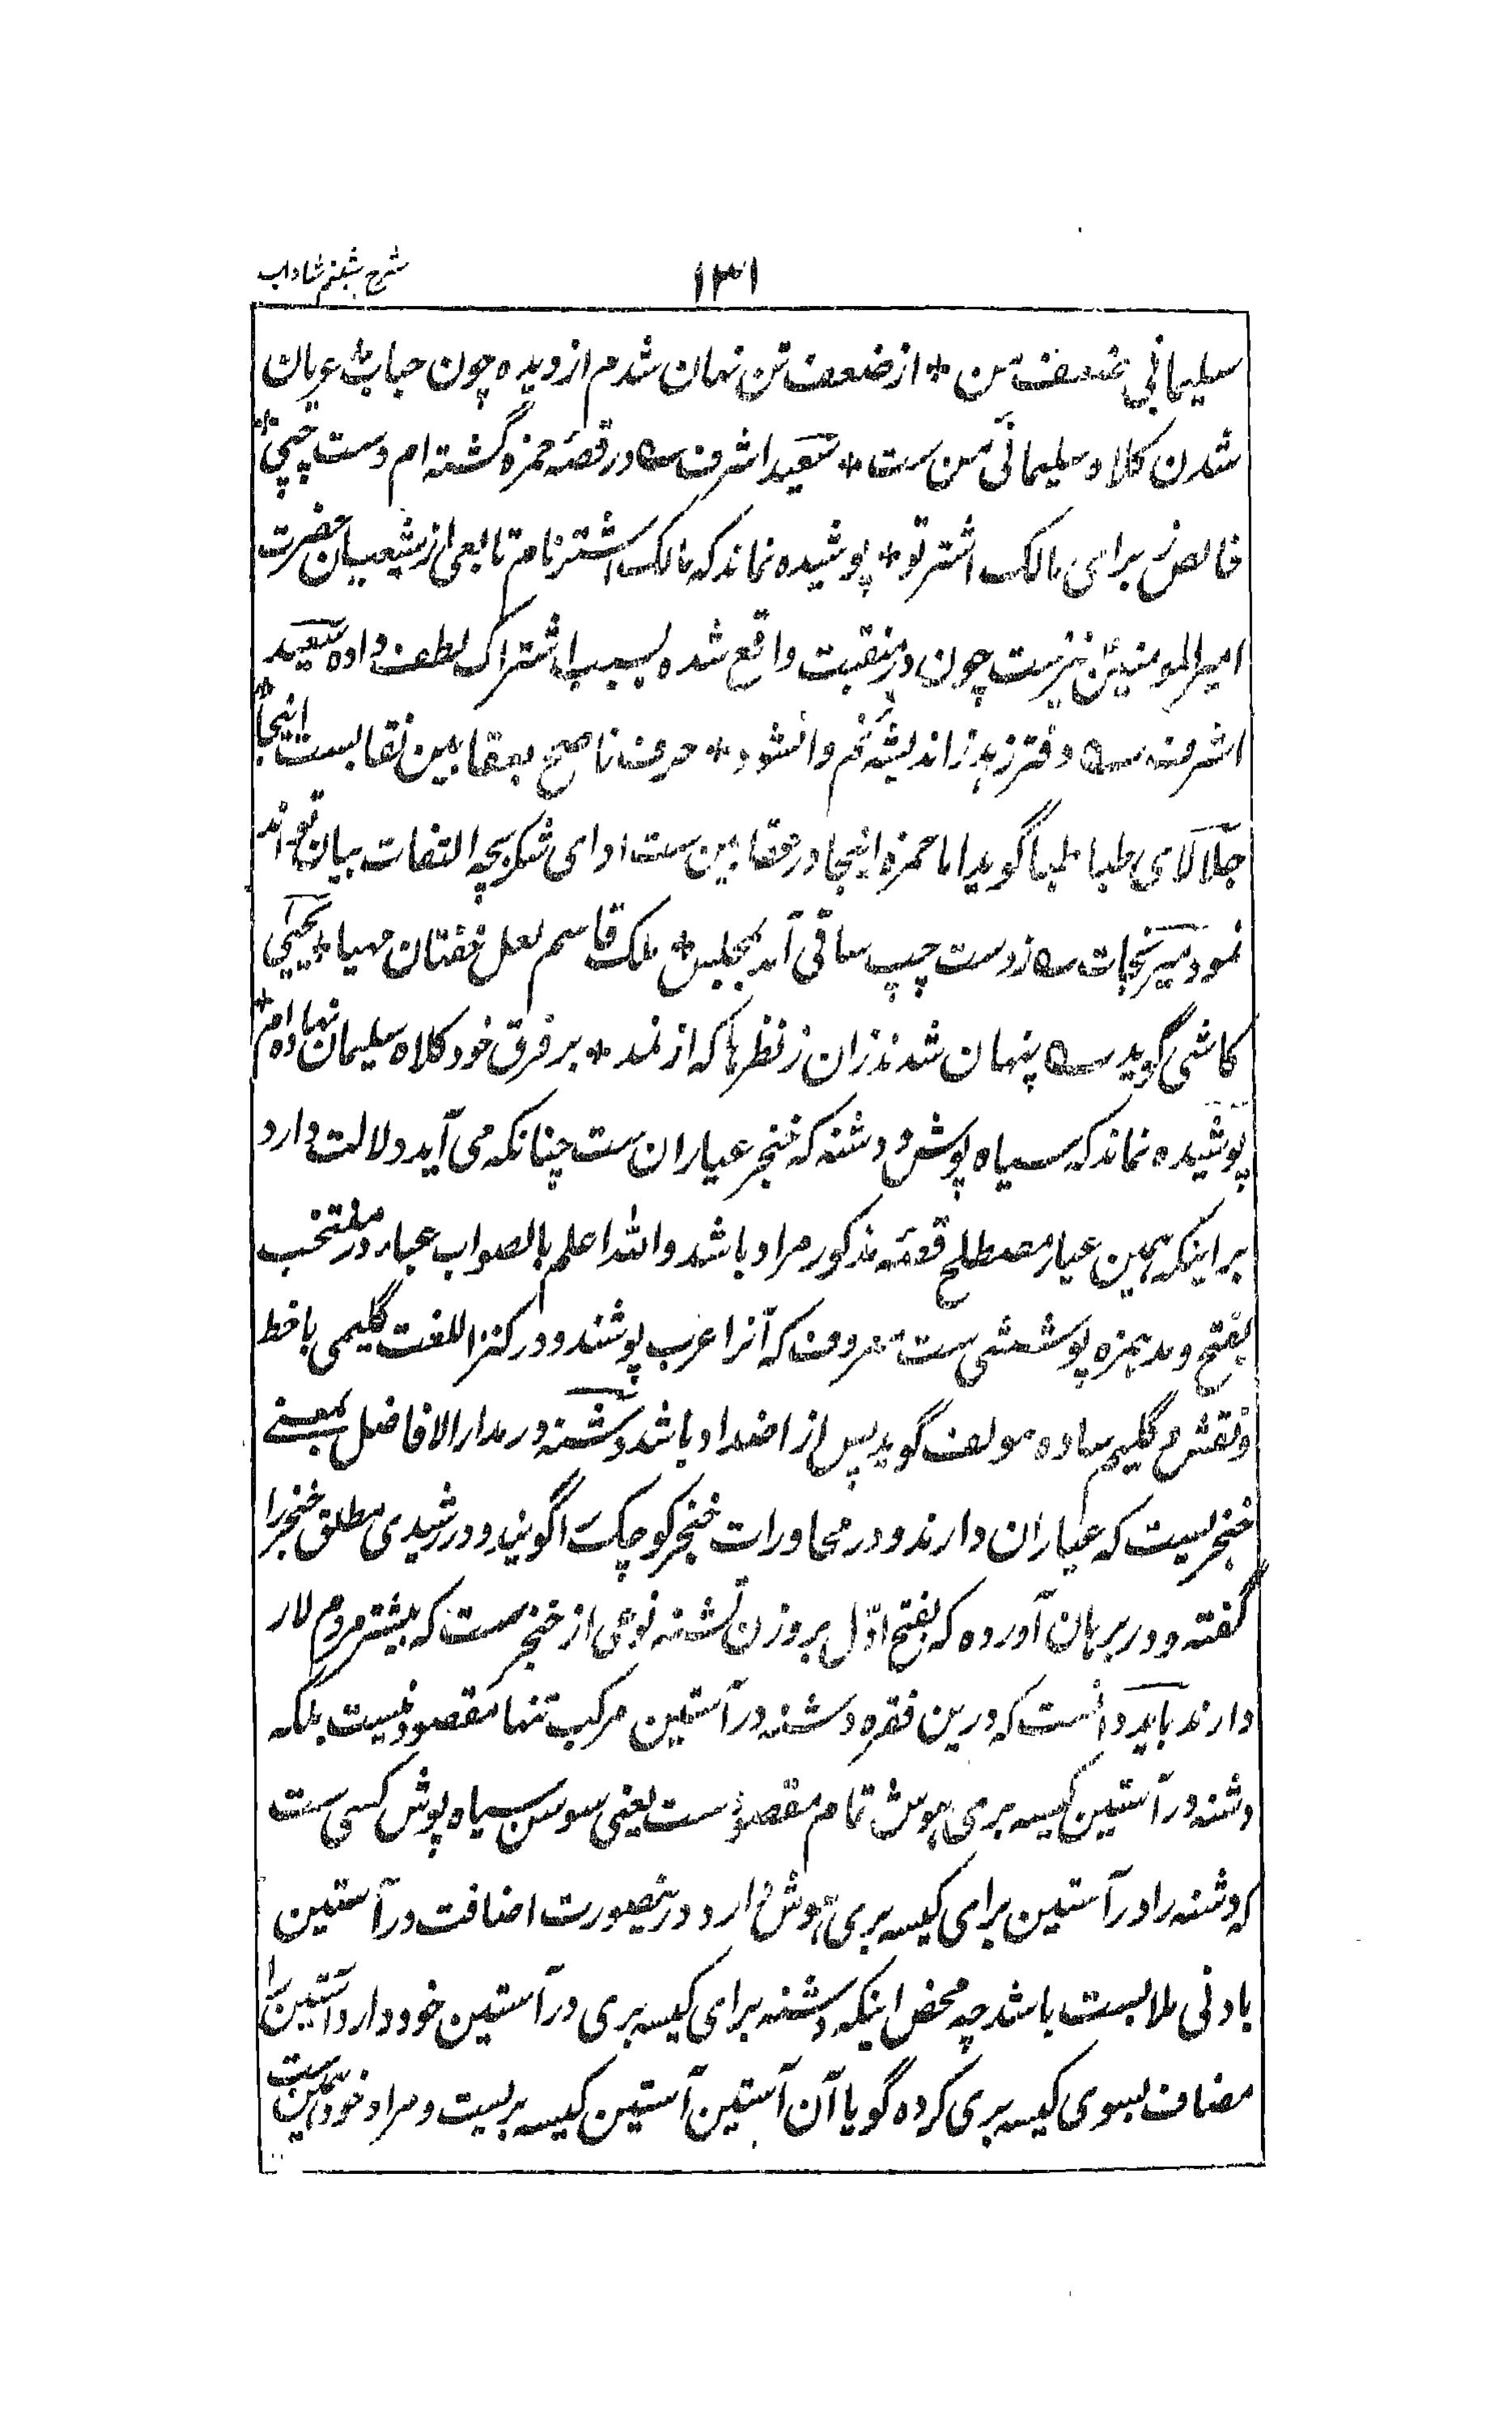 شرح شبنم شاداب
۱۳۱
سلیمانی ضعف من * از ضعف تن نهان شدم از دیده چون حباب * عریان
شدن کلاه سلیمانی من ست * سعید اشرف ؎ در قصهٔ حمزه گشته ام دست چپی *
خالص برای مالک اشتر تو * پوشیده نماند که مالک اشتر نام تابعی از شیعیان حضرت
امیرالمومنین نیزست چون در منقبت واقع شده بسبب اشتراک لطف داده سعید
اشرف ؎ دفتر زهد ز اندیشهٔ غم وا نشود * حرف ناصح بعقابین نقابست اینجا *
جلالای طباطبا گوید اما حمزه اینجا در عقابین ست ادای شکر بچه التفات بیان تواند
نمود میر نجات ؎ ز دست چپ ساقی آمد بمجلس * ملک قاسم لعل خفتان مهیا * یحیی
کاشی گوید ؎ پنهان شدند زان ز نظرها که از نمد * بر فرق خود کلاه سلیمان نهاده ام *
پوشیده نماند که سیاه پوش و دشنه که خنجر عیاران ست چنانکه می آید دلالت دارد
بر اینکه همین عیار مصطلح قصهٔ مذکور مراد باشد والله اعلم بالصواب عبا در منتخب
بفتح و مد همزه پوششی ست معروف که آنرا عرب پوشند و در کنز اللغت گلیمی با خط
و نقش و گلیم ساده مولف گوید پس از اضداد باشد دشنه در مدار الافاضل بمعنی
خنجریست که عیاران دارند و در محاورات خنجر کوچک را گویند و در رشیدی مطلق خنجر را
گفته و در برهان آورده که بفتح اوّل بر وزن تشنه نوعی از خنجرست که بیشتر مردم لار
دارند باید دانست که درین فقره دشنه در آستین مرکب تنها مقصود نیست بلکه
دشنه در آستین کیسه بری هوش تمام مقصودست یعنی سوسن سیاه پوش کسی ست
که دشنه را در آستین برای کیسه بری هوش دارد درینصورت اضافت در آستین
بادنی ملابست باشد چه محض اینکه دشنه برای کیسه بری در آستین خود دارد آستین را
مضاف بسوی کیسه بری کرده گویا آن آستین آستین کیسه بریست و مراد خود همین ست